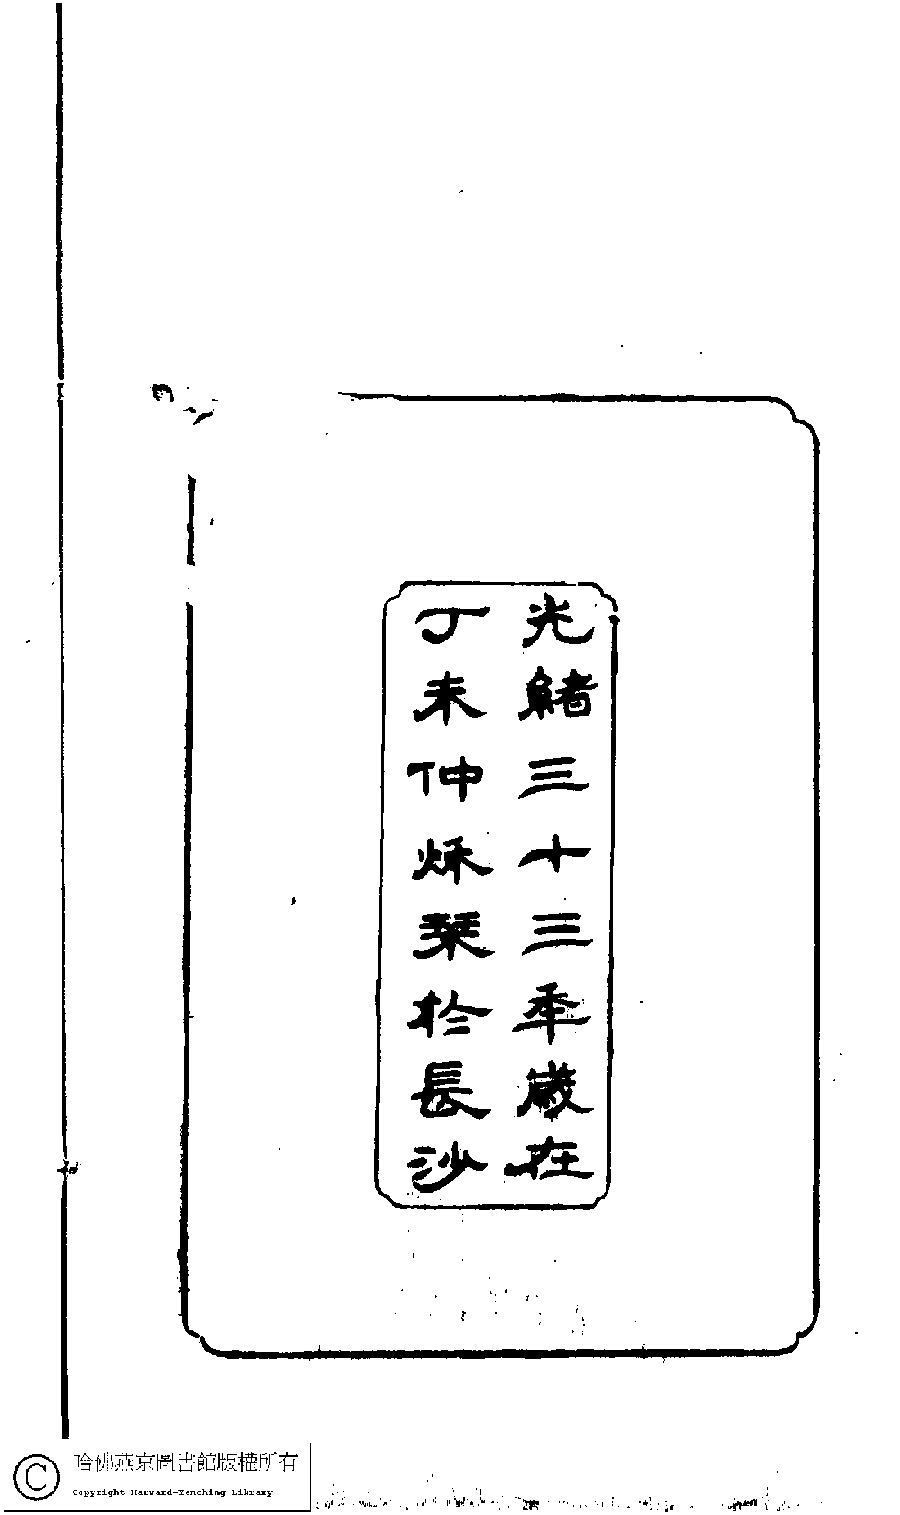 光緒三十三年歲在
丁未仲秌栞於長沙
哈佛燕京圖書館版權所有
Copyright Harvard-Yenching Library